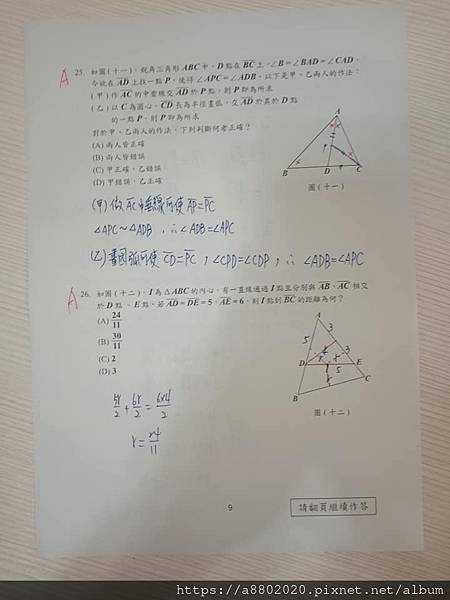 A
25. 如圖(十一),銳角三角形 ABC 中,D 點在 BC 上,∠B=∠BAD=∠CAD。
今欲在 AD 上找一點 P,使得 ∠APC=∠ADB,以下是甲、乙兩人的作法:
(甲) 作 AC 的中垂線交 AD 於 P 點,則 P 即為所求
(乙) 以 C 為圓心,CD 長為半徑畫弧,交 AD 於異於 D 點
的一點 P,則 P 即為所求
對於甲、乙兩人的作法,下列判斷何者正確?
(A) 兩人皆正確
(B) 兩人皆錯誤
(C) 甲正確,乙錯誤
(D) 甲錯誤,乙正確
A
P
B
D
C
圖(十一)
(甲) 做 AC 中垂線可使 AP=PC
∠APC~∠ADB,∴∠ADB=∠APC
(乙) 畫圓弧可使 CD=PC,∠CPD=∠CDP,∴ ∠ADB=∠APC
A
26. 如圖(十二),I 為△ABC 的內心,有一直線通過 I 點且分別與 AB、AC 相交
於 D 點、E 點。若 AD=DE=5,AE=6,則 I 點到 BC 的距離為何?
(A) 24/11
(B) 30/11
(C) 2
(D) 3
A
5
3
3
D
r
r
E
5
r
B
C
圖(十二)
5r/2 + 6r/2 = 6×4/2
r = 24/11
9
請翻頁繼續作答
https://a8802020.pixnet.net/album